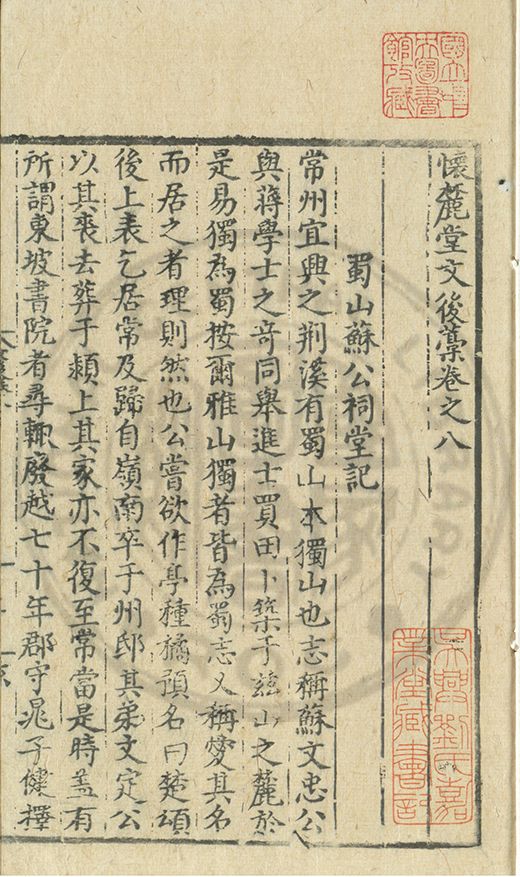 國立中央圖書館收藏
懷麓堂文後藁卷之八
蜀山蘇公祠堂記
常州宜興之荆溪有蜀山本獨山也志稱蘇文忠公
與蔣學士之奇同舉進士買田卜築于兹山之麓於
是易獨為蜀按爾雅山獨者皆為蜀志又稱愛其名
而居之者理則然也公嘗欲作亭種橘預名曰楚頌
後上表乞居常及歸自嶺南卒于州邸其弟文定公
以其喪去葬于潁上其家亦不復至常當是時盖有
所謂東坡書院者尋輒廢越七十年郡守晁子健擇
吳興劉氏嘉業堂藏書記